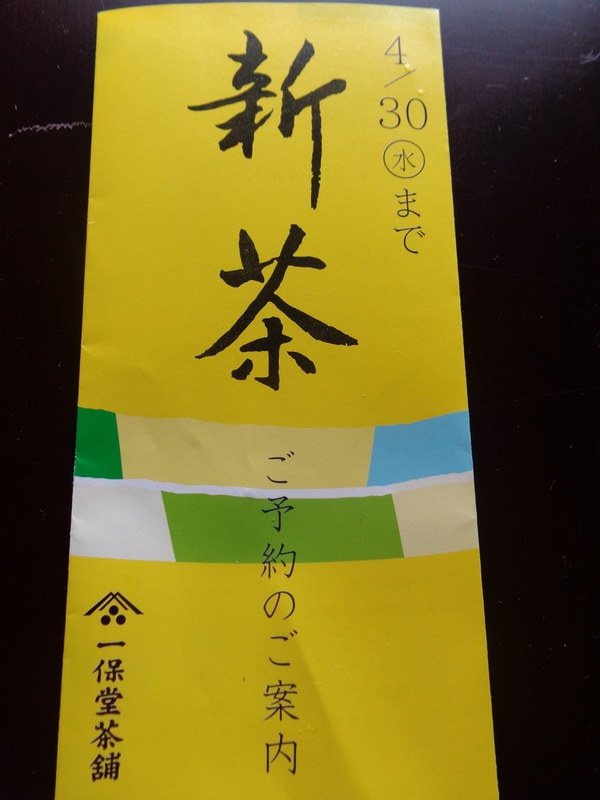 4/30㊌まで
新茶
ご予約のご案内
一保堂茶舗